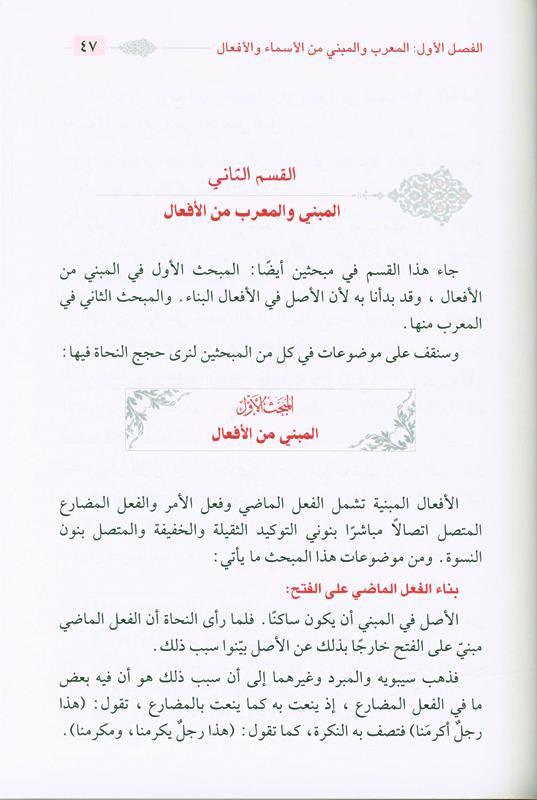 الفصل الأول: المعرب والمبني من الأسماء والأفعال
٤٧
القسم الثاني
المبني والمعرب من الأفعال
جاء هذا القسم في مبحثين أيضًا: المبحث الأول في المبني من
الأفعال ، وقد بدأنا به لأن الأصل في الأفعال البناء. والمبحث الثاني في
المعرب منها.
وسنقف على موضوعات في كل من المبحثين لنرى حجج النحاة فيها:
المبحث الأول
المبني من الأفعال
الأفعال المبنية تشمل الفعل الماضي وفعل الأمر والفعل المضارع
المتصل اتصالاً مباشرًا بنوني التوكيد الثقيلة والخفيفة والمتصل بنون
النسوة. ومن موضوعات هذا المبحث ما يأتي:
بناء الفعل الماضي على الفتح:
الأصل في المبني أن يكون ساكنًا. فلما رأى النحاة أن الفعل الماضي
مبنيّ على الفتح خارجًا بذلك عن الأصل بيّنوا سبب ذلك.
فذهب سيبويه والمبرد وغيرهما إلى أن سبب ذلك هو أن فيه بعض
ما في الفعل المضارع ، إذ ينعت به كما ينعت بالمضارع ، تقول: (هذا
رجلٌ أكرمَنا) فتصف به النكرة، كما تقول: (هذا رجلٌ يكرمنا، ومكرمنا).